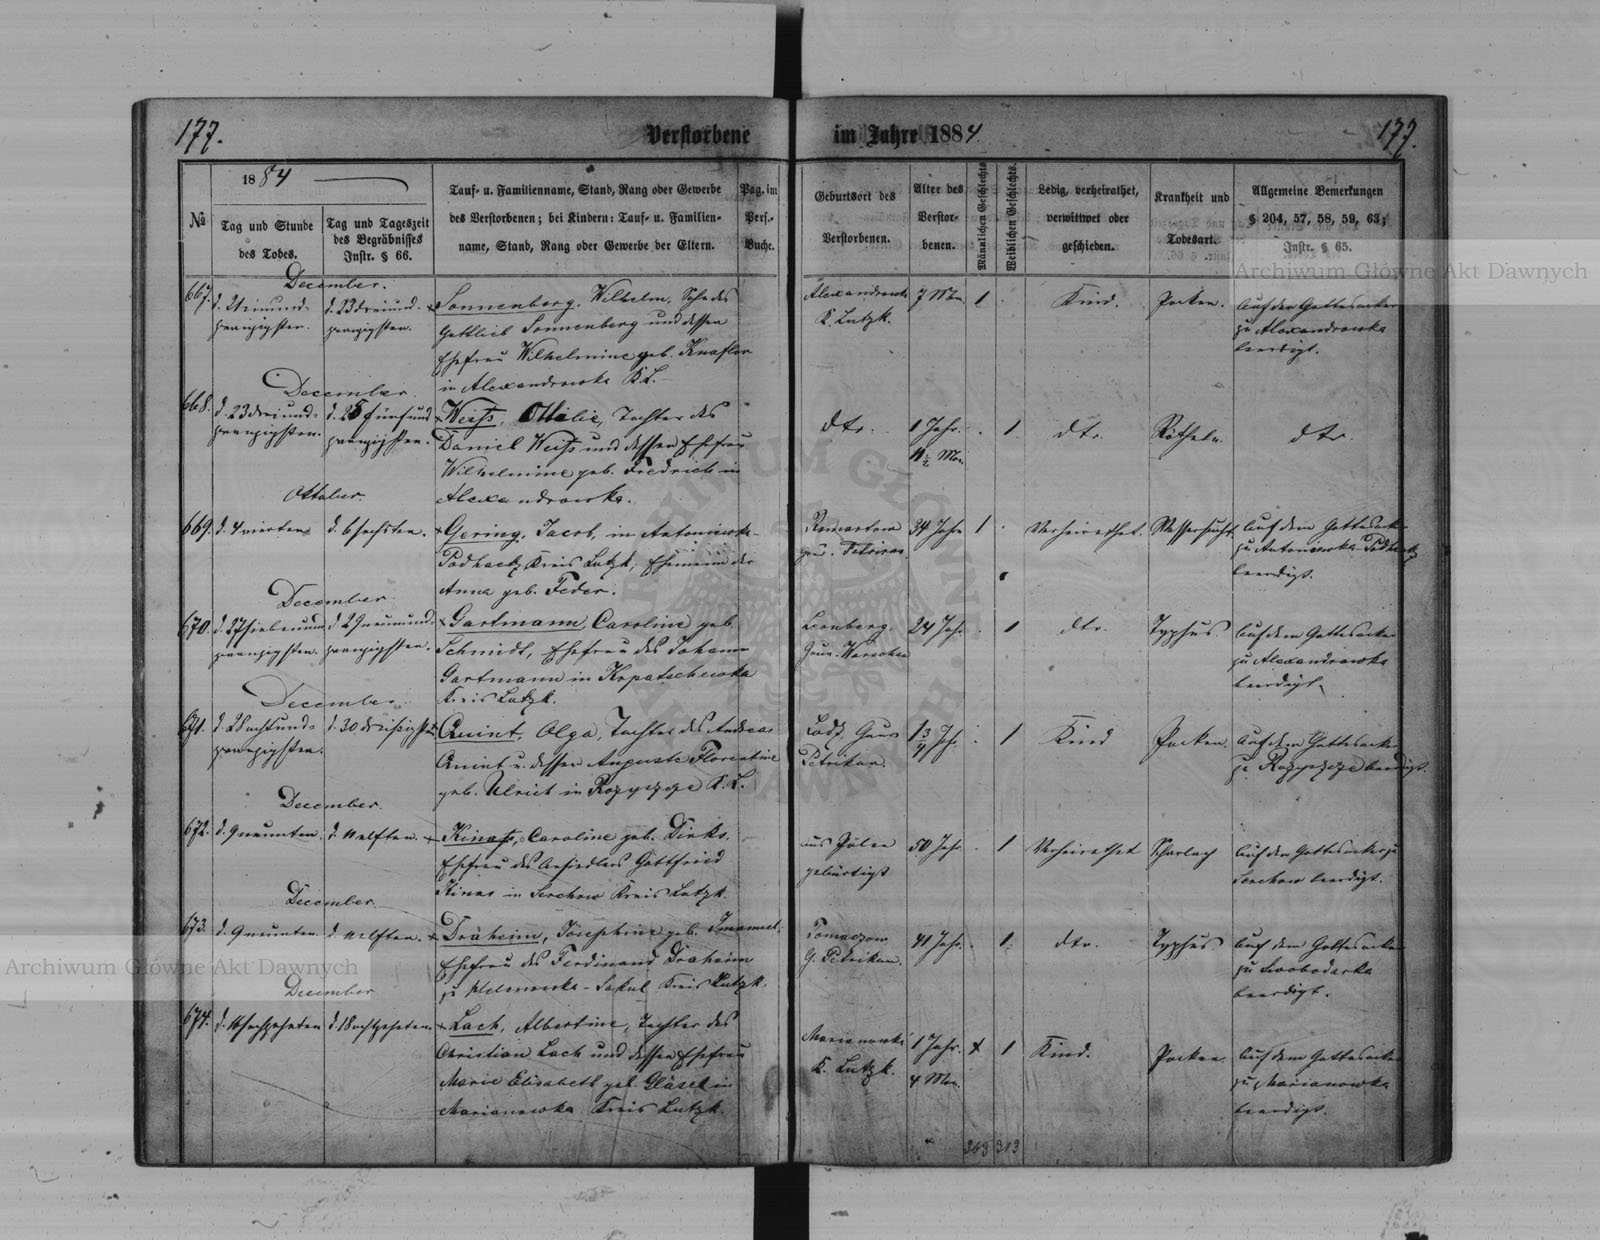 177.
Verstorbene
im Jahre 1884
177.
1884
№
Tag und Stunde
des Todes.
Tag und Tageszeit
des Begräbnisses
Instr. § 66.
Tauf- u. Familienname, Stand, Rang oder Gewerbe
des Verstorbenen; bei Kindern: Tauf- u. Familien-
name, Stand, Rang oder Gewerbe der Eltern.
Pag. im
Pers.-
Buche.
Geburtsort des
Verstorbenen.
Alter des
Verstor-
benen.
Männlichen Geschlechts
Weiblichen Geschlechts.
Ledig, verheirathet,
verwittwet oder
geschieden.
Krankheit und
Todesart.
Allgemeine Bemerkungen
§ 204, 57, 58, 59, 63;
Instr. § 65.
Archiwum Główne Akt Dawnych
December.
667.
d. 21 einund-
zwanzigsten.
d. 23 dreiund-
zwanzigsten.
Sonnenberg, Wilhelm, Sohn des
Gottlieb Sonnenberg und dessen
Ehefrau Wilhelmine geb. Knafler
in Alexandrowka K. L.
Alexandrowka
K. Lutzk.
7 Mon.
1
Kind.
Pocken.
Auf dem Gottesacker
zu Alexandrowka
beerdigt.
December.
668.
d. 23 dreiund-
zwanzigsten.
d. 25 fünfund
zwanzigsten.
Weiss, Ottilie, Tochter des
Daniel Weiss und dessen Ehefrau
Wilhelmine geb. Fredrich in
Alexandrowka.
dto.
1 Jahr.
Mon.
1
dto.
Rötheln.
dto.
Oktober
669.
d. 4 vierten
d. 6 sechsten.
Gering, Jacob, in Antoniowka-
Podhaetz Kreis Lutzk, Ehemann der
Anna geb. Feder.
34 Jahr
1
Verheirathet.
Wassersucht
Auf dem Gottesacker
zu Antoniowka-Podhaetz
beerdigt.
December
670.
d. 27 siebenund
zwanzigsten.
d. 29 neunund-
zwanzigsten.
Gartmann, Caroline geb.
Schmidt, Ehefrau des Johann
Gartmann in Kopatschewka
Kreis Lutzk.
Leonberg,
Gouv. Warschau
24 Jahr.
1
dto.
Typhus
Auf dem Gottesacker
zu Alexandrowka
beerdigt.
December
671.
d. 28 achtund-
zwanzigsten.
d. 30 dreißigsten
Quint, Olga, Tochter des Andreas
Quint u. dessen Auguste Florentine
geb. Ulrich in Rozyszcze K. L.
Lodz, Gouv
Petrikau.
1 3/4 Jahr
1
Kind
Pocken.
Auf dem Gottesacker
zu Rozyszcze beerdigt.
December.
672.
d. 9 neunten.
d. 11 elften.
Kinass, Caroline geb. Dirks.
Ehefrau des Ansiedlers Gottfried
Kinas in Serchow Kreis Lutzk.
aus Polen
gebürtigt
50 Jahr
1
Verheirathet
Scharlach
Auf dem Gottesacker zu
Serchow beerdigt.
December.
673.
d. 9 neunten.
d. 11 elften.
Draheim, Josephine geb. Immanuel.
Ehefrau des Ferdinand Draheim
Kreis Lutzk.
Tomaszow
G. Petrikau.
41 Jahr.
1.
dto.
Typhus
Auf dem Gottesacker
zu Swobodarka
beerdigt.
Archiwum Główne Akt Dawnych
December
674.
d. 16 sechzehnten
d. 18 achtzehnten.
Lach, Albertine, Tochter des
Christian Lach und dessen Ehefrau
Marie Elisabeth geb. Gläsel in
Marianowka Kreis Lutzk.
Marianowka
K. Lutzk.
1 Jahr.
4 Mon.
1
Kind.
Pocken.
Auf dem Gottesacker
zu Marianowka
beerdigt.
363 313